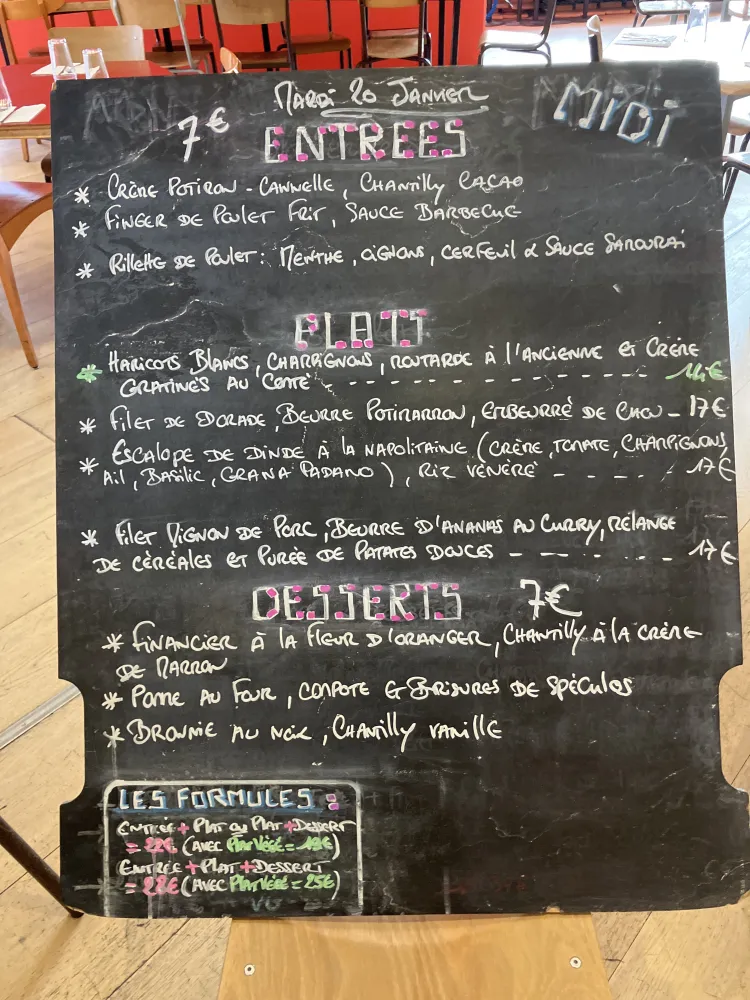 MARDI 20 JANVIER
MIDI
7€
ENTREES
* CRÈME POTIRON - CANNELLE, CHANTILLY CACAO
* FINGER DE POULET FRIT, SAUCE BARBECUE
* RILLETTE DE POULET : MENTHE, OIGNONS, CERFEUIL & SAUCE SAMOURAI
PLATS
* HARICOTS BLANCS, CHAMPIGNONS, MOUTARDE À L'ANCIENNE ET CRÈME
GRATINÉS AU COMTÉ - - - - - - - - - - - - - - 14€
* FILET DE DORADE, BEURRE POTIMARRON, EMBEURRÉ DE CHOU - 17€
* ESCALOPE DE DINDE À LA NAPOLITAINE (CRÈME, TOMATE, CHAMPIGNONS,
AIL, BASILIC, GRANA PADANO), RIZ VÉNÉRÉ - - - - 17€
* FILET MIGNON DE PORC, BEURRE D'ANANAS AU CURRY, MÉLANGE
DE CÉRÉALES ET PURÉE DE PATATES DOUCES - - - - - 17€
DESSERTS 7€
* FINANCIER À LA FLEUR D'ORANGER, CHANTILLY À LA CRÈME
DE MARRON
* POMME AU FOUR, COMPOTE & BRISURES DE SPÉCULOS
* BROWNIE AU NOIX, CHANTILLY VANILLE
LES FORMULES :
ENTRÉE + PLAT OU PLAT + DESSERT
= 22€ (AVEC PLAT VÉGÉ = 19€)
ENTRÉE + PLAT + DESSERT
= 28€ (AVEC PLAT VÉGÉ = 25€)